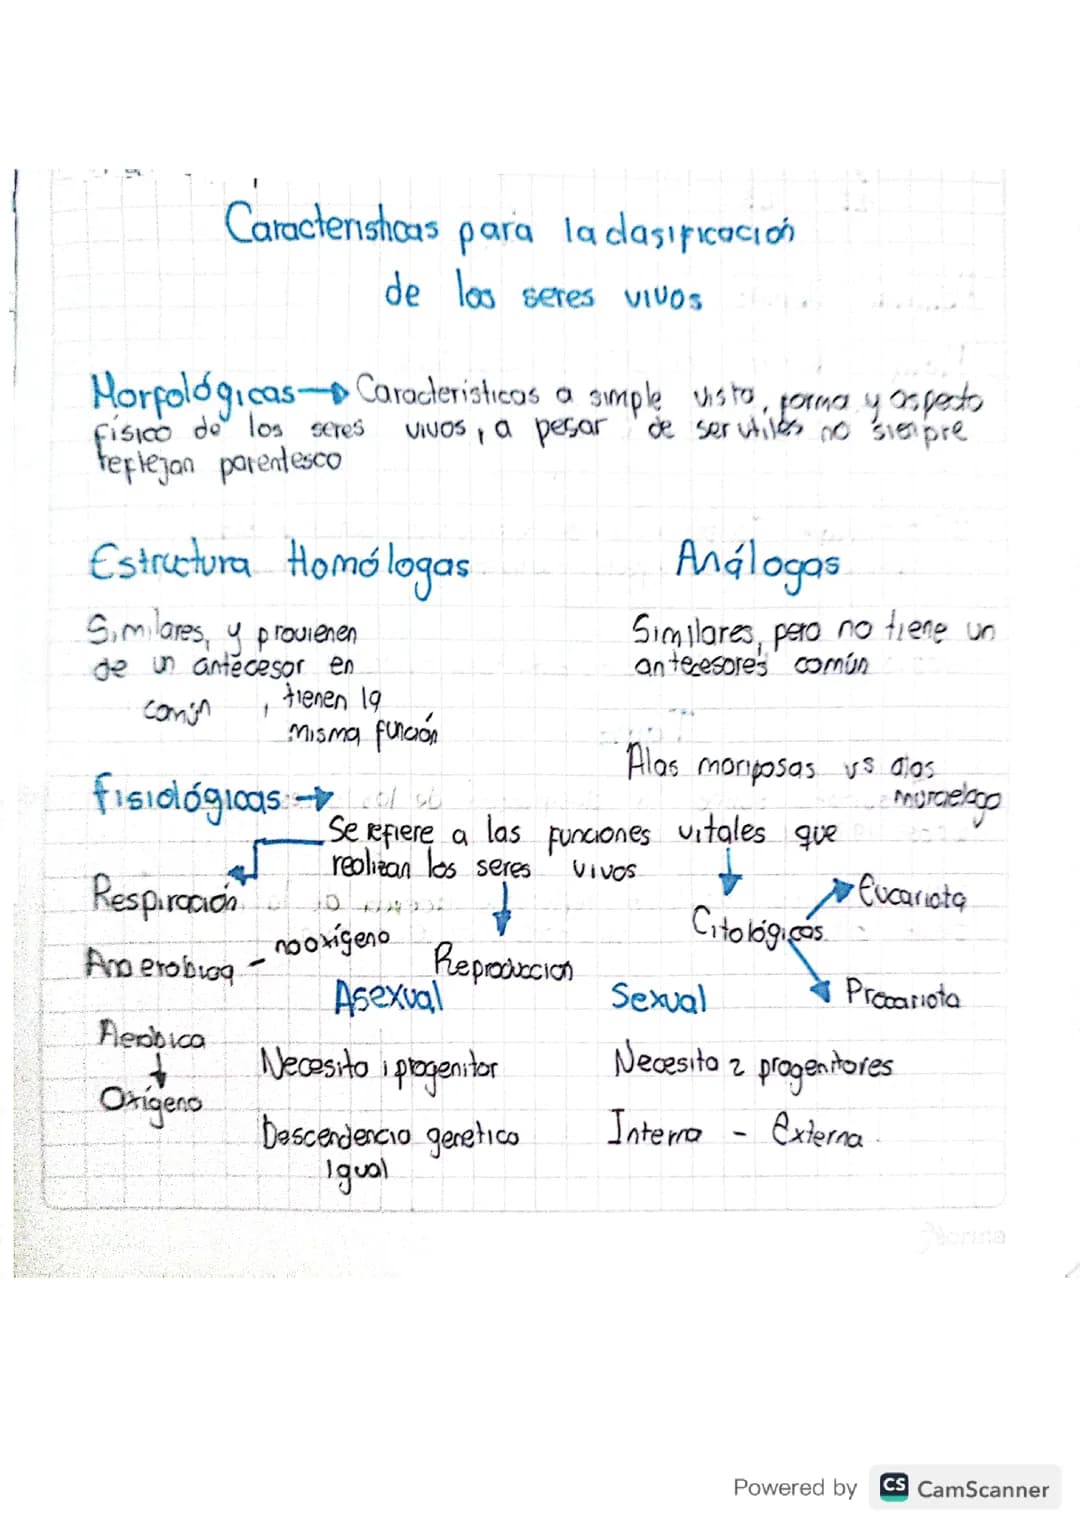 Caracteristicas para la clasificación
de los seres vivos
Morfológicas → Caracteristicas a simple vista, forma y aspecto
físico de los seres vivos, a pesar de ser utiles no siempre
reflejan parentesco
Estructura Homólogas
Análogas
Similares, y provienen
de un antecesor en
común, tienen la
misma función
Similares, pero no tiene un
antecesores común
Alas mariposas vs alas
murcielago
fisiológicas →
Se refiere a las funciones vitales que
realizan los seres vivos
Respiración
Anaerobica - no oxígeno
Aerobica
↓
Oxígeno
Reproduccion
Asexual
Necesito 1 progenitor
Descendencia genetico
igual
Sexual
Necesito 2 progenitores
Interna - Externa
Citológicas
Eucariota
Procariota
Norma
Powered by CS CamScanner